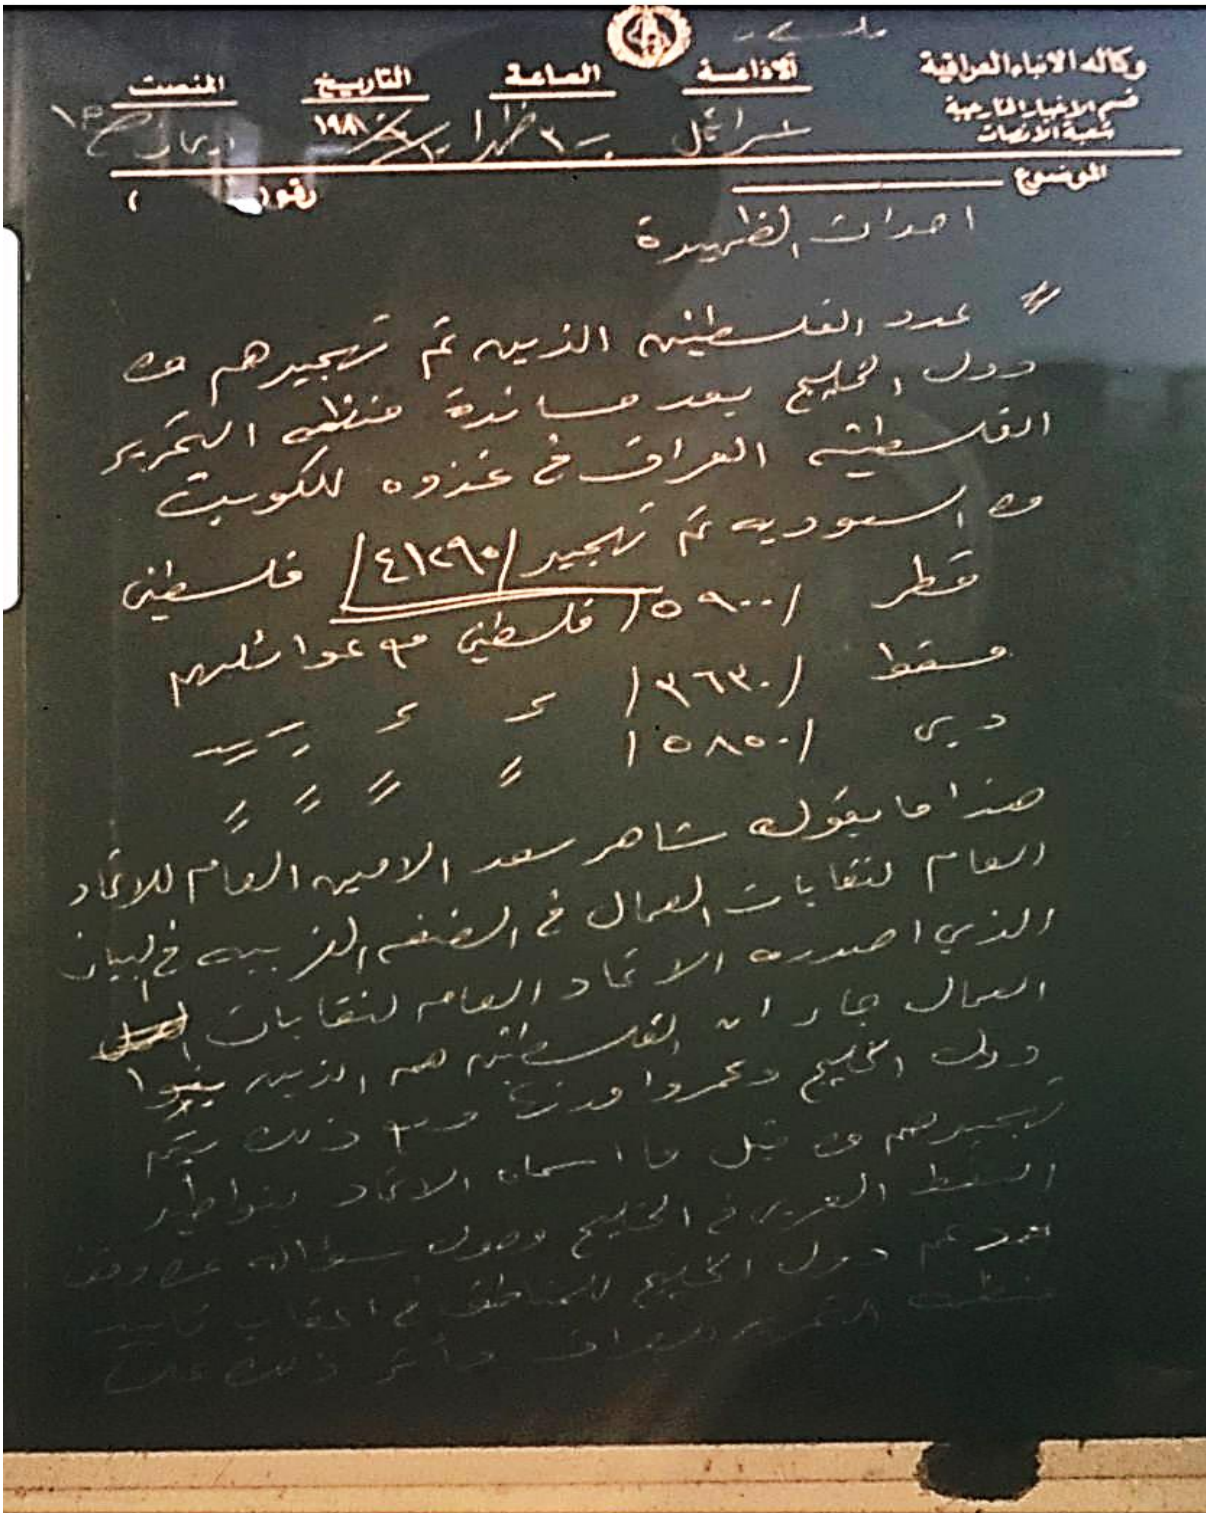 وكالة الانباء العراقية
قسم الاخبار الخارجية
شعبة الانصات
الاذاعة الساعة التاريخ المنصت
١٩٨
الموضوع
رقم ( )
احداث الظهيرة
عدد الفلسطينين الذين تم تهجيرهم من
دول الخليج بعد مساندة منظمه التحرير
الفلسطينيه العراق في غزوه للكويت
من السعوديه تم تهجير /٤١٢٩٠/ فلسطيني
قطر /٥٩٠٠/ فلسطيني مع عوائلهم
مسقط /٣٦٣٠/ = = =
دبي /٥٨٥٠/ = = = =
هذا ما يقوله شاهر سعد الامين العام للاتحاد
العام لنقابات العمال في الضفه الغربيه في البيان
الذي اصدره الاتحاد العام لنقابات
العمال جاء ان الفلسطينين هم الذين بنوا
دول الخليج وعمروا مدنها ومع ذلك يتم
تهجيرهم من قبل ما اسماه الاتحاد بنواطير
النفط العربي في الخليج وحول سؤاله عن وقف
دعم دول الخليج للمناطق في اعقاب تاييد
منظمة التحرير للعراق